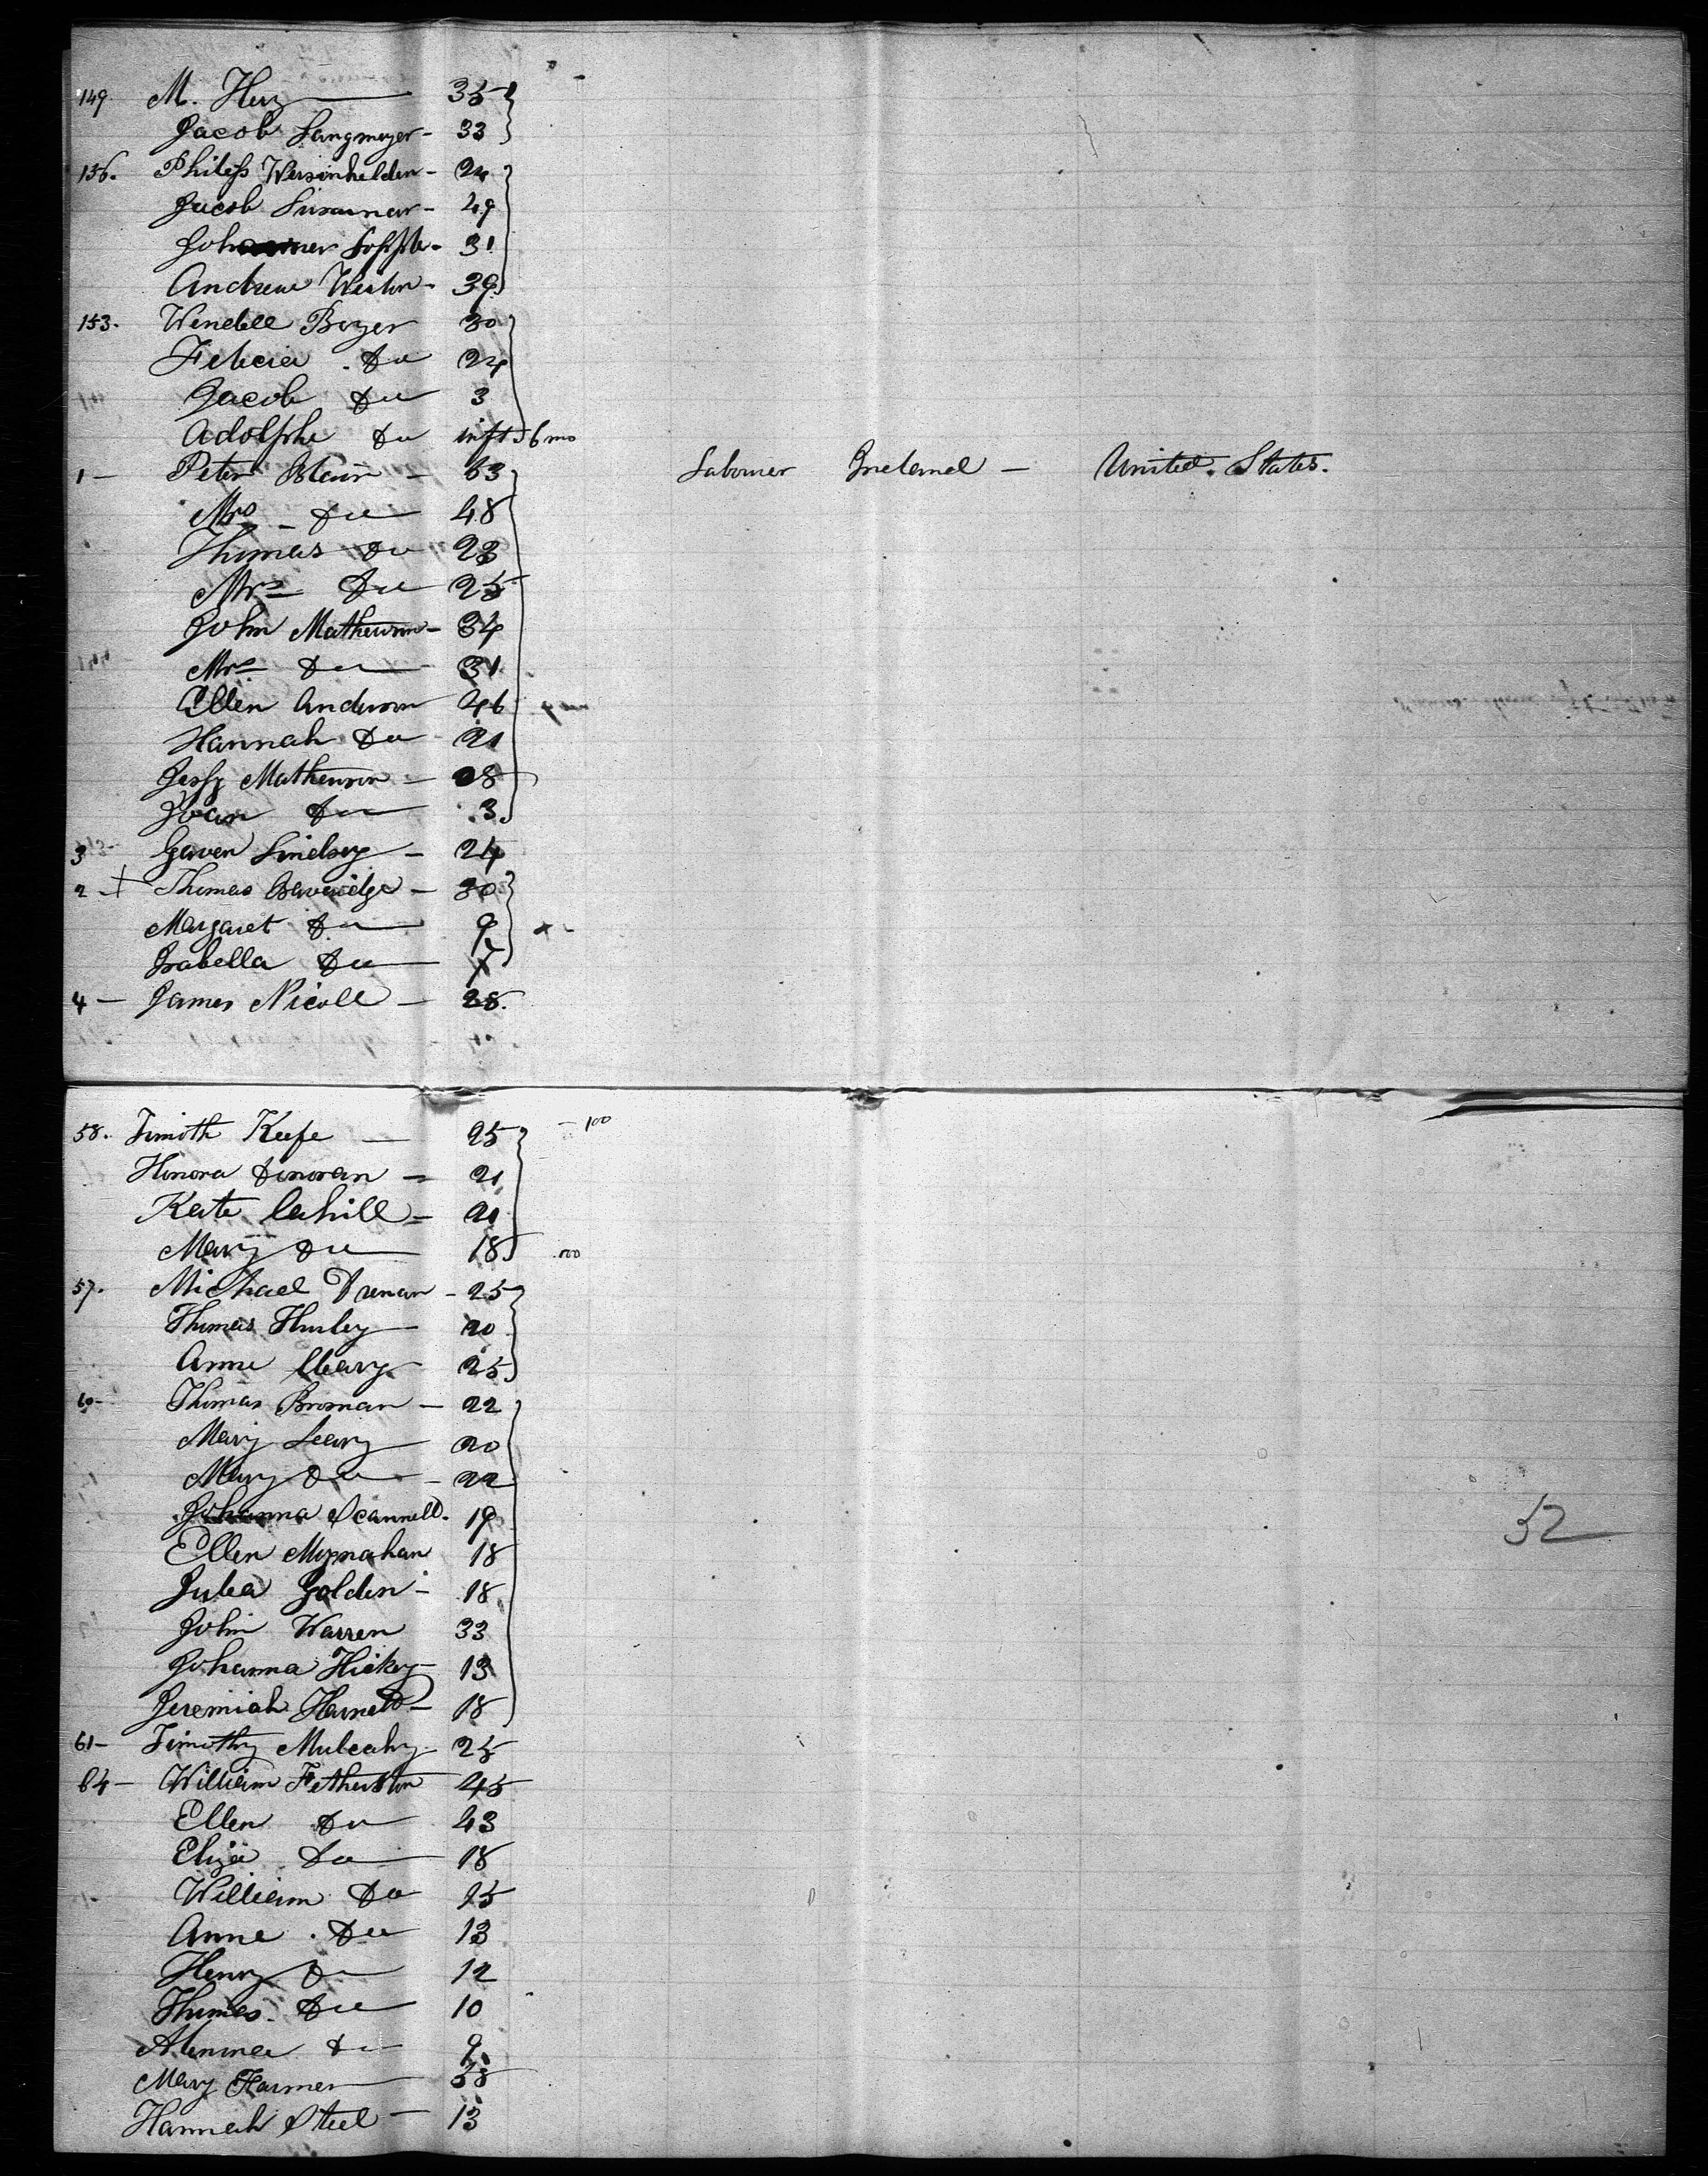 149. M. Herz 35
Jacob Langmeyer - 33
156. Philip - 24
Jacob - 49
31
Andrew Weston - 39
153. Wendell Boyer 30
Felicia Do 24
Jacob Do 3
Adolphe Do inft 6 mo
1 - Peter - 53 Labourer Ireland - United States.
Mrs Do 48
Thomas Do 23
Mrs Do 25
John Mathewson - 34
Mrs Do 31
Ellen Anderson 46
Hannah Do 21
Jessy Mathewson - 08
Joan Do 3
3 Gaven Lindsey - 24
2 - + Thomas Baveridge - 30
Margaret Do 9
Isabella Do 7
4 - James Nicoll - 28.
58. Timoth Keefe - 25 - 100
Honora Dinovan - 21
Kate Cahill - 20
Mary Do 18 100
57. Michael Drenan - 25
Thomas Hurley 20
Anne Cleary - 25
60 - Thomas Brosnan - 22
Mary Leary 20
Mary Do - 22
Johanna Scannell - 19
Ellen Moynahan 18
Julea Golden - 18
John Warren 33
Johanna Hickey - 13
Jeremiah Harnett - 18
61 - Timothy Mulcahy - 25
64 - William Fetherston 45
Ellen Do 43
Eliza Do 18
William Do 15
Anne Do 13
Henry Do 12
Thomas Do 10
Do 9
Mary Harmer 38
Hannah Steel - 13
52